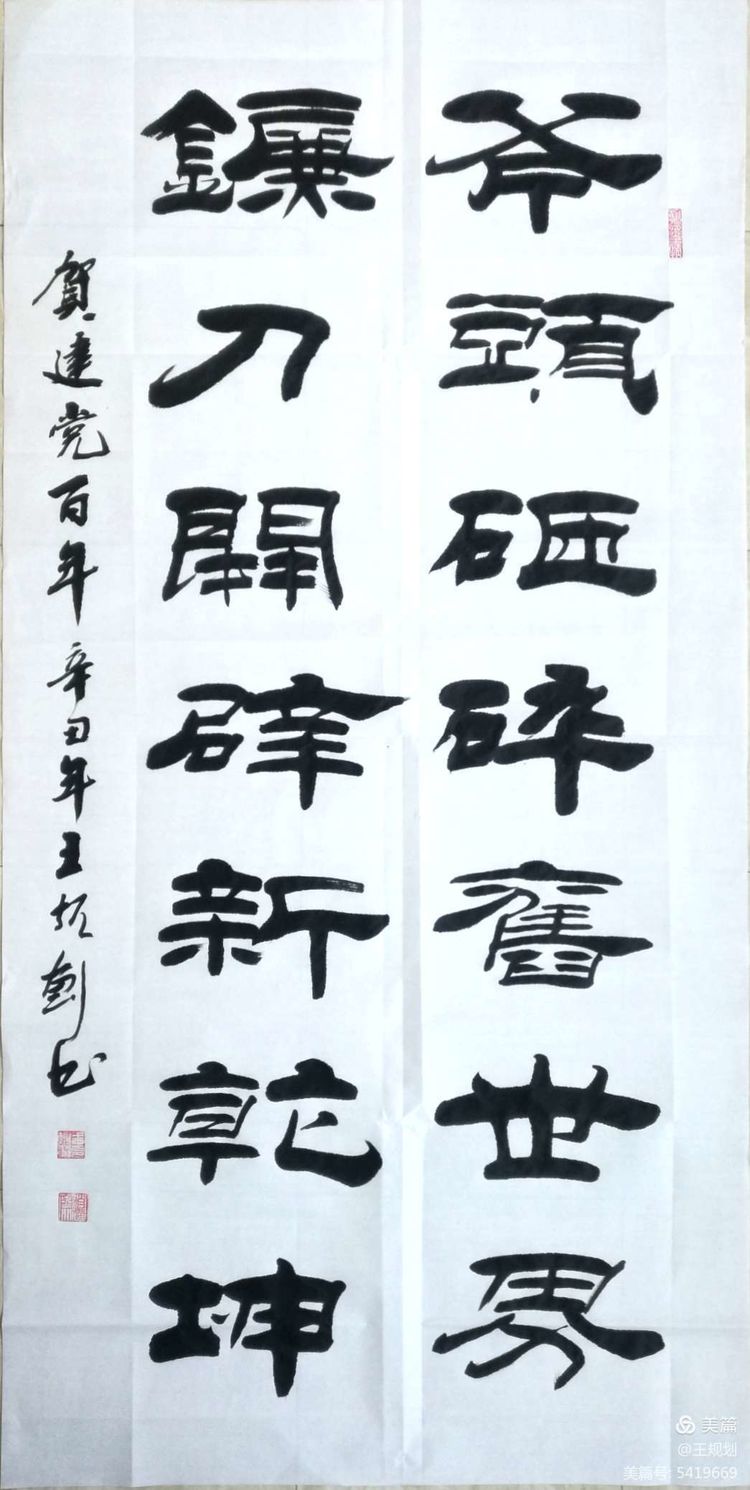 斧頭砸碎舊世界
鐮刀開闢新乾坤
賀建党百年 辛丑年王振劍书
美篇
@王规划
美篇号: 5419669